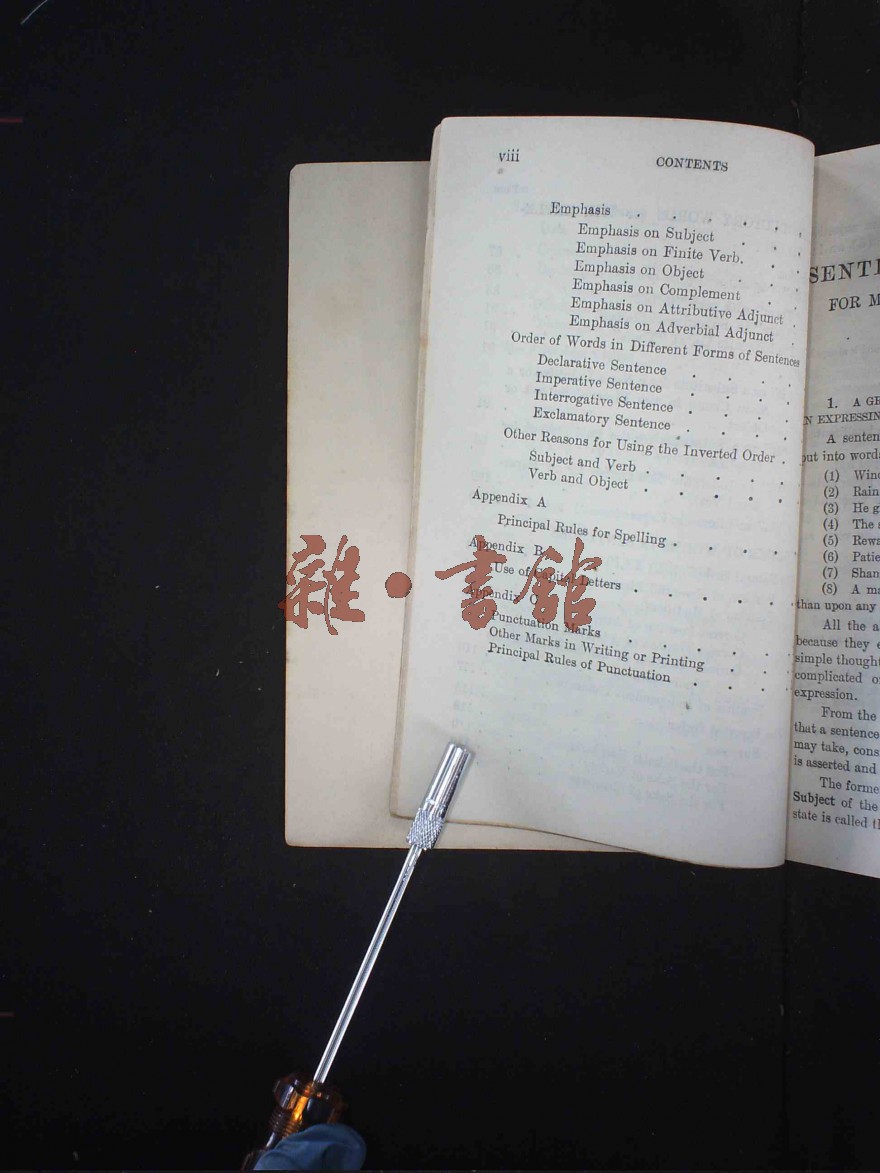 viii
CONTENTS
Emphasis
Emphasis on Subject
Emphasis on Finite Verb.
Emphasis on Object
Emphasis on Complement
Emphasis on Attributive Adjunct
Emphasis on Adverbial Adjunct
Order of Words in Different Forms of Sentences
Declarative Sentence
Imperative Sentence
Interrogative Sentence
Exclamatory Sentence
Other Reasons for Using the Inverted Order
Subject and Verb
Verb and Object
Appendix A
Principal Rules for Spelling
Appendix B
Use of Capital Letters
Appendix C
Punctuation Marks
Other Marks in Writing or Printing
Principal Rules of Punctuation
雜·書館
FOR
1. A
A
into words
(1)
(2) Rain
(3) He
(4) The
(5)
(6)
(7)
(8) A
than upon any
All the
because they
simple thought
complicated
expression.
From the
that a sentence
may take,
is asserted and
The
Subject of the
state is called